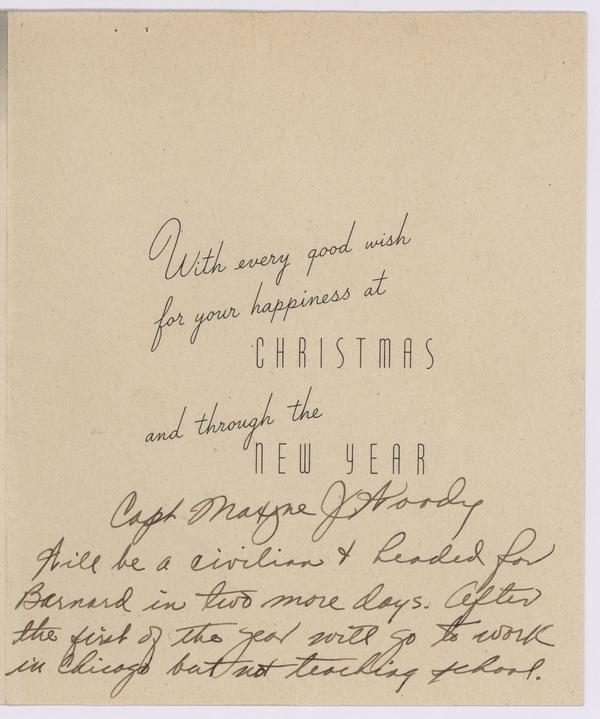 With every good wish
for your happiness at
CHRISTMAS
and through the
NEW YEAR
Capt Maxyne J Woody
Will be a civilian & headed for
Barnard in two more days. After
the first of the year will go to work
in Chicago but not teaching school.